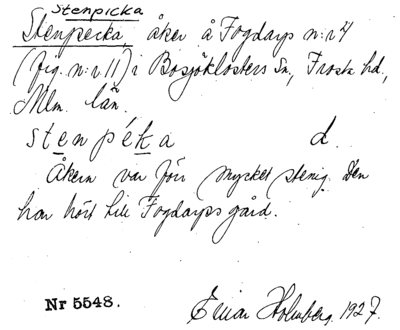 Stenpicka
Stenpecka, åker å Fogdarp n:r 4
(fig. n:r 11) i Bosjöklosters Sn, Frosta hd.,
Mlm. län.
stenpéka d.
Åkern var förr mycket stenig. Den
har hört till Fogdarps gård.
Nr 5548. Einar Holmberg. 1927.